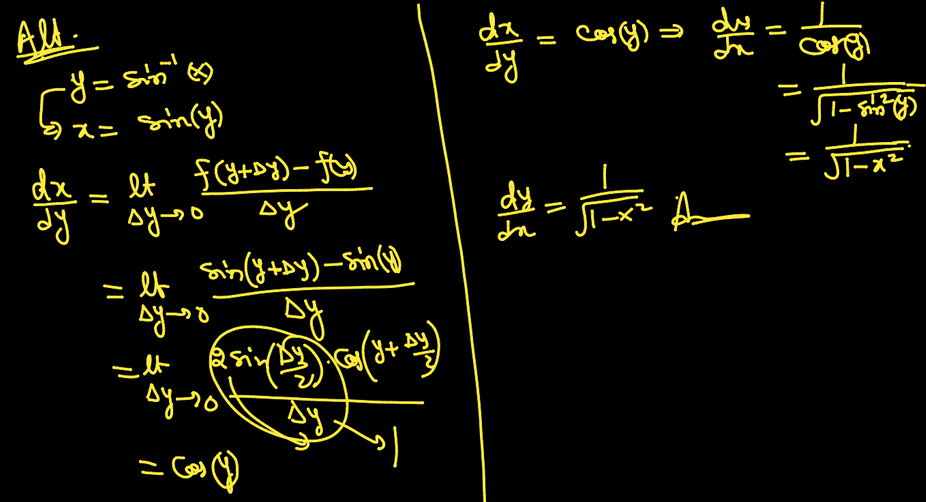 Alt.
y = sin⁻¹(x)
⇒ x = sin(y)
dx/dy = lt Δy→0 (f(y+Δy) − f(y))/Δy
= lt Δy→0 (sin(y+Δy) − sin(y))/Δy
= lt Δy→0 (2 sin(Δy/2) · cos(y + Δy/2))/Δy → 1
= cos(y)
dx/dy = cos(y) ⇒ dy/dx = 1/cos(y)
= 1/√(1 − sin²(y))
= 1/√(1 − x²)
dy/dx = 1/√(1 − x²)